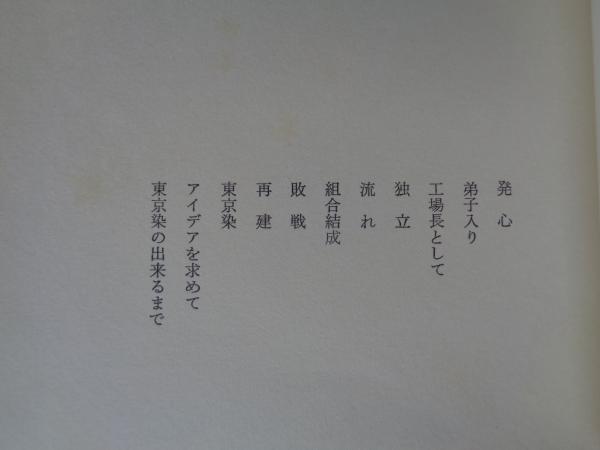 発心
弟子入り
工場長として
独立
流れ
組合結成
敗戦
再建
東京染
アイデアを求めて
東京染の出来るまで